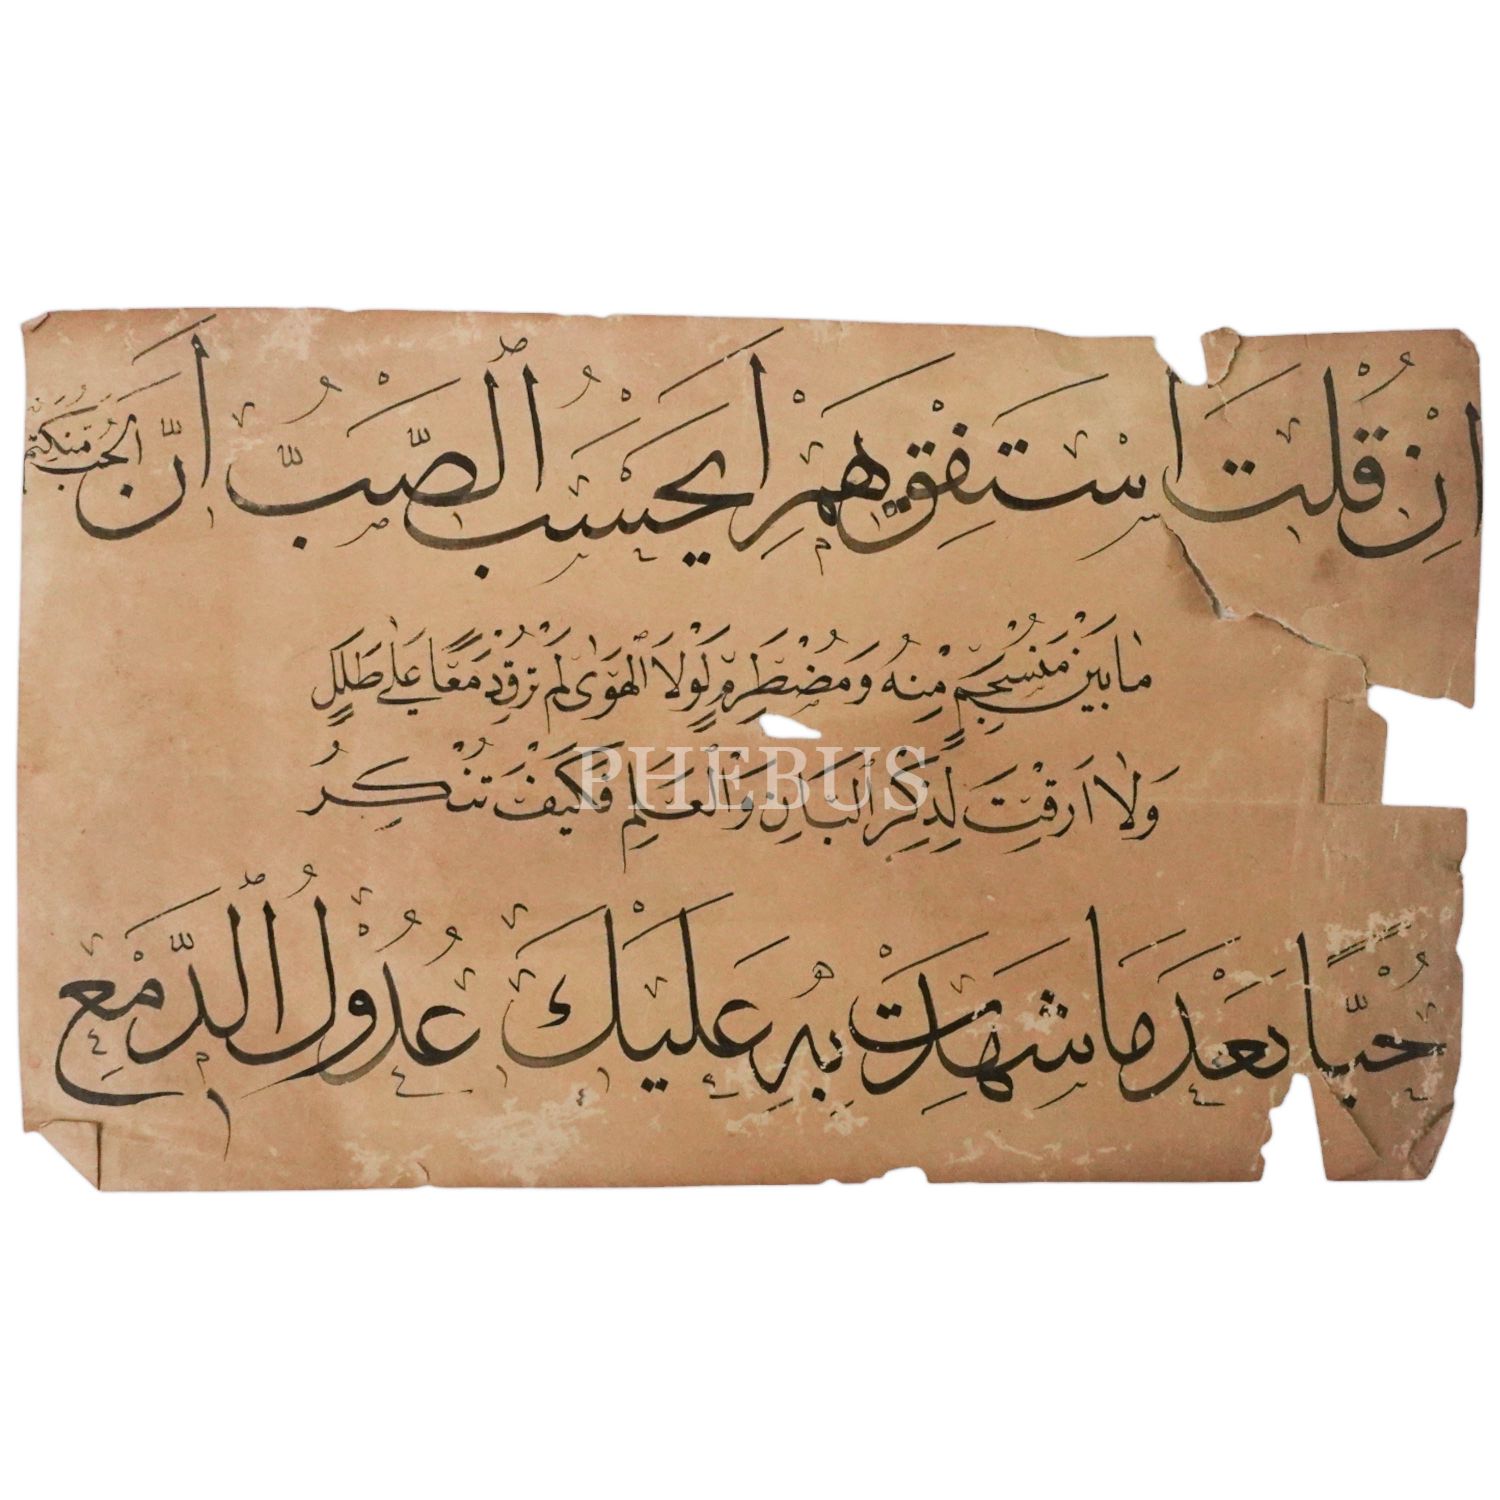 اِنْ قُلْتَ اسْتَفِقْ يَهِمِ اَيَحْسَبُ الصَّبُّ اَنَّ الْحُبَّ مُنْكَتِمٌ
مَا بَيْنَ مُنْسَجِمٍ مِنْهُ وَمُضْطَرِمٍ لَوْلَا الْهَوٰى لَمْ تُرِقْ دَمْعًا عَلٰى طَلَلٍ
وَلَا اَرِقْتَ لِذِكْرِ الْبَانِ وَالْعَلَمِ فَكَيْفَ تُنْكِرُ
حُبًّا بَعْدَ مَا شَهِدَتْ بِهِ عَلَيْكَ عُدُوْلُ الدَّمْعِ
PHEBUS